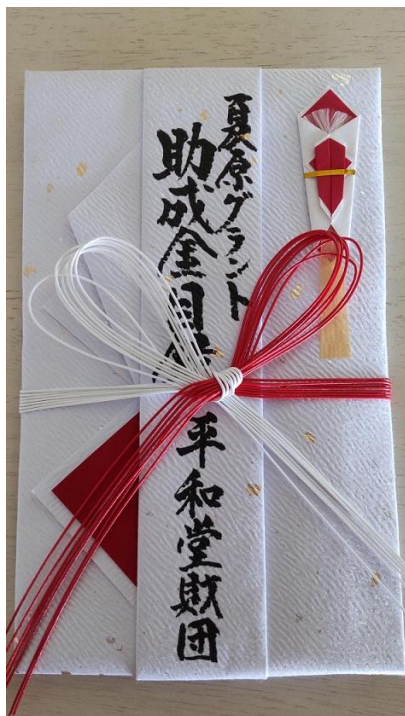 夏原グラント
助成金目
平和堂財団